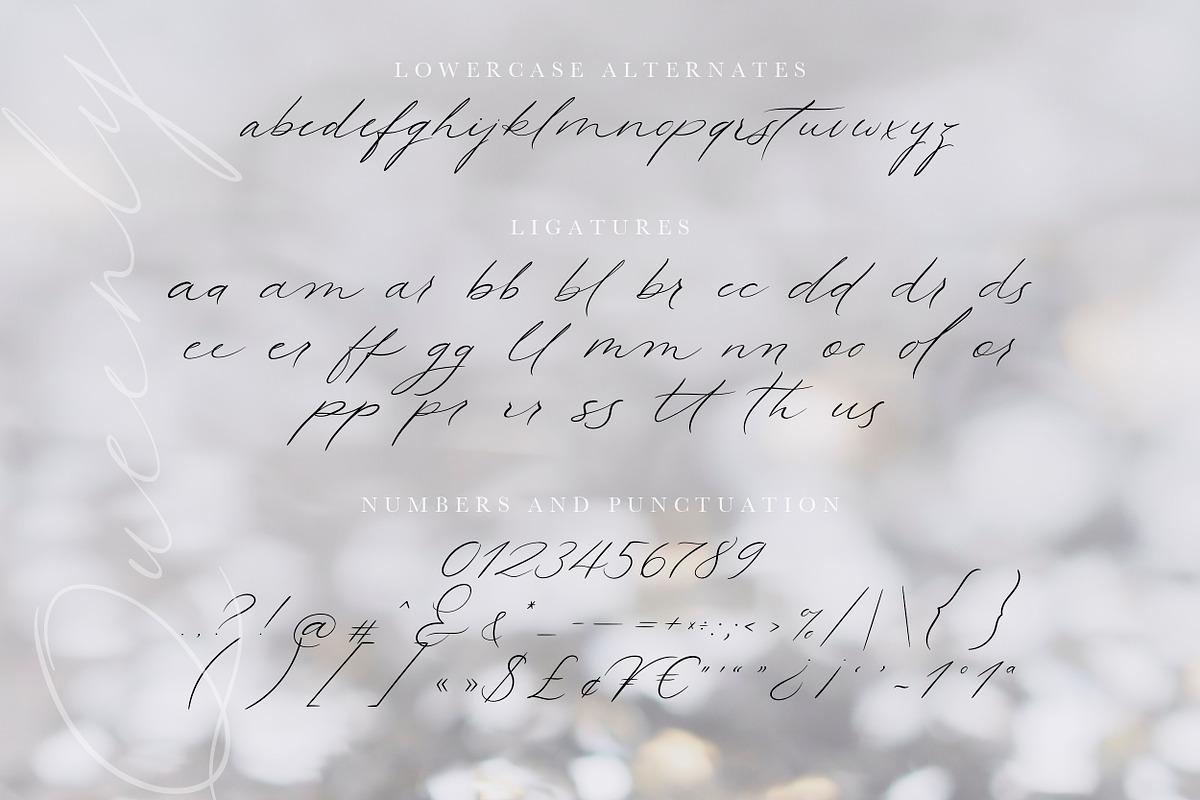 Queenly
LOWERCASE ALTERNATES
abcdefghijklmnopqrstuvwxyz
LIGATURES
aa am ar bb bl br cc dd dr ds
ee er ff gg ll mm nn oo of or
pp pr rr ss tt th us
NUMBERS AND PUNCTUATION
0123456789
. , . ? ! @ # ^ & & * _ - – — = + × ÷ : . ; < > % / | \ { }
( ) [ ] « » $ £ ¢ ¥ € " ' " “ ” ¿ ¡ ‘ ’ ~ 1 º 1 ª